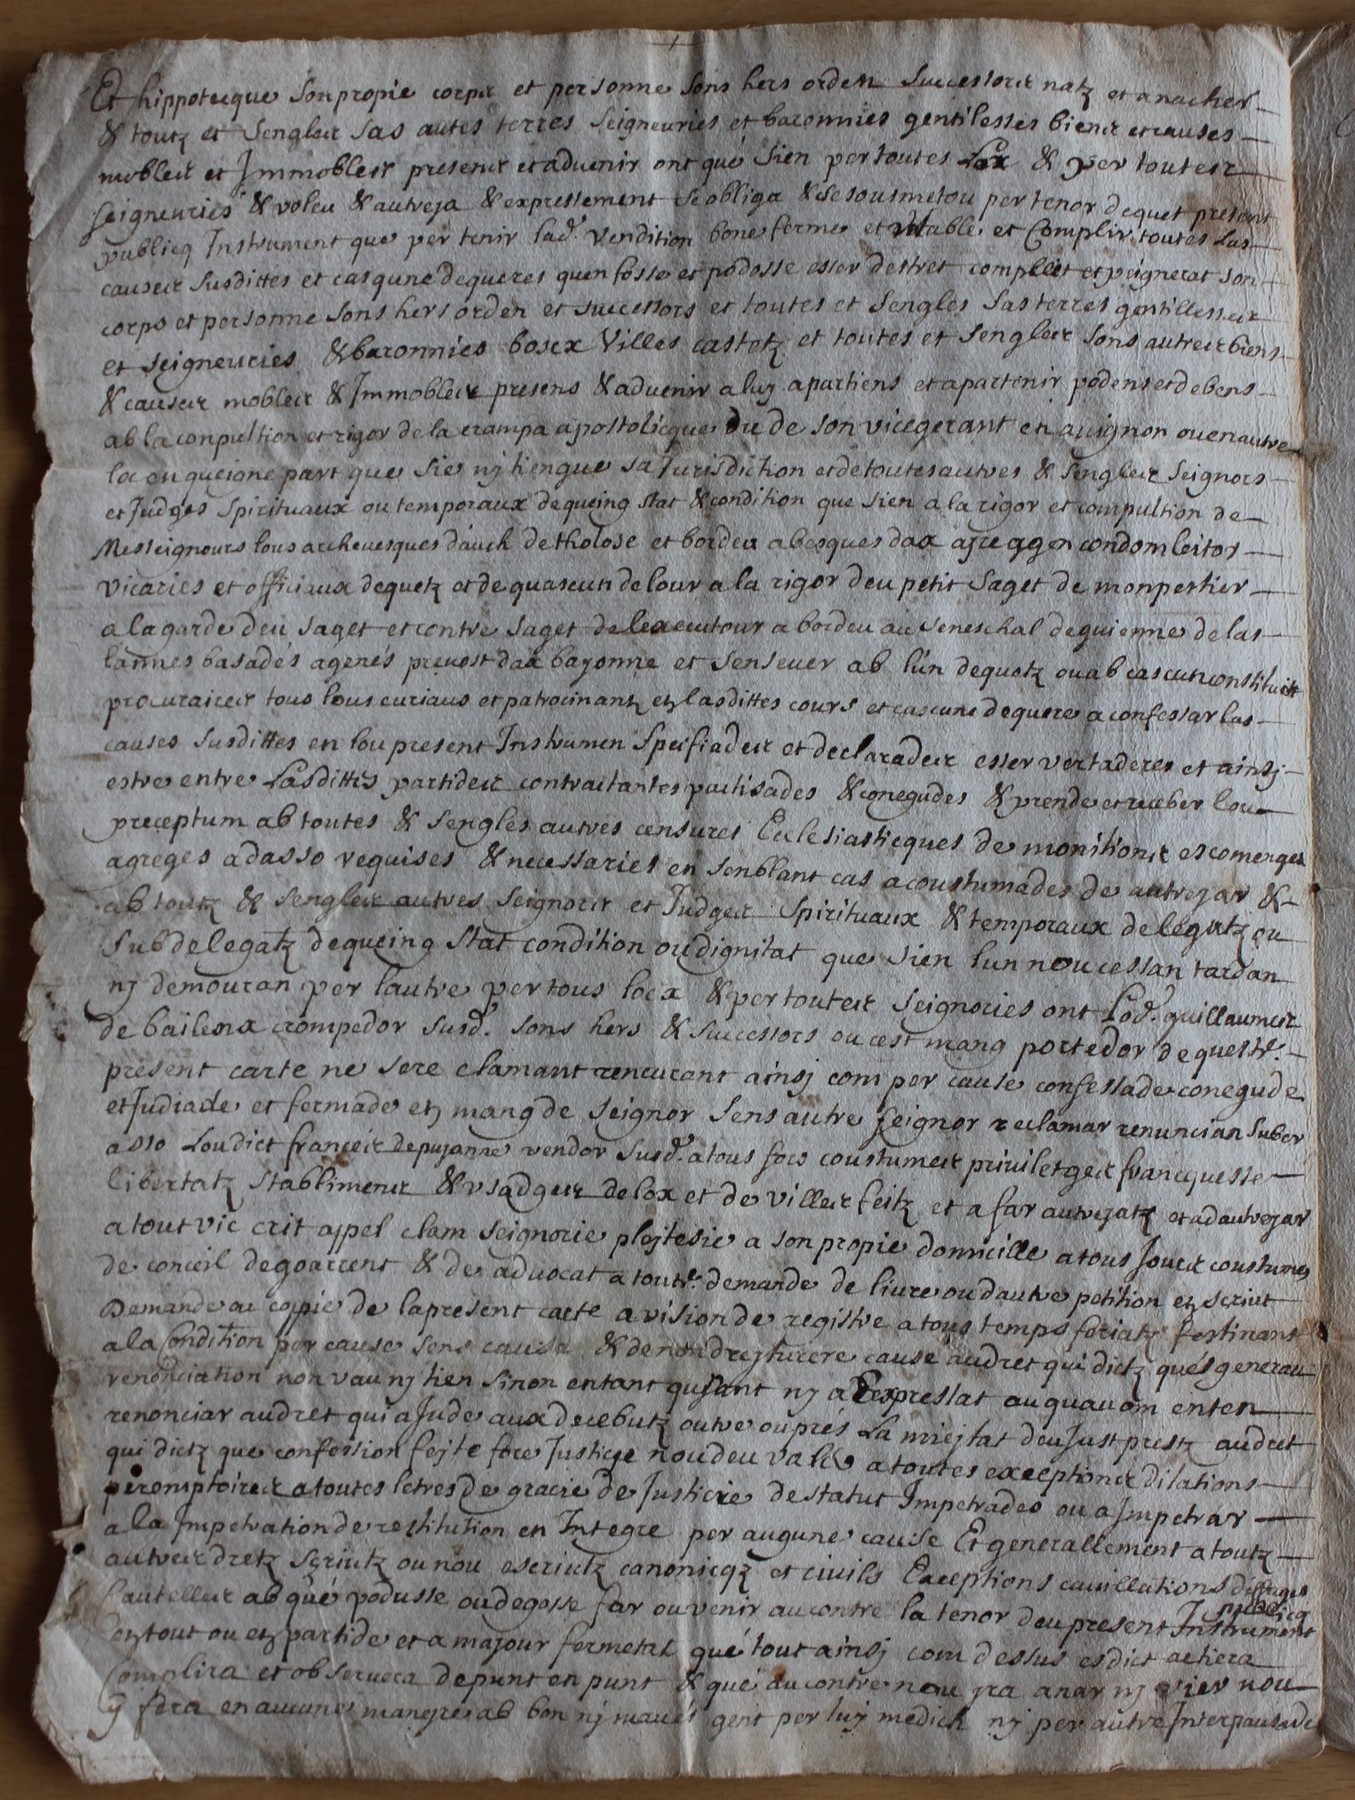 Et hippotecque son propie corps et personne sons hers orden successors natz et a naicher
& toutz et sengleir sas autes terres seigneuries et baronnies gentilesses biens et causes
mobleir et Immobleir presens et advenir ont que sien per toutes Lox & per touteir
seigneuries & voleu & autreja & expressement se obliga & se sousmetou per tenor dequet present
publicq Instrument que per tenir lad. vendition bone ferme et stable et Complir toutes Las
causeir susdittes et casqune dequeres quen fosse et podosse esser destret compleit et peignerat son
corps et personne sons hers orden et successors et toutes et sengles sas terres gentillesseir
et seigneuries & baronnies boscx Villes castetz et toutes et sengleir sons autreir biens
& causeir mobleir & Immobleir presens & advenir a luy apartiens et apartenir podens et debens
ab la conpultion et rigor de la crampa apostolicque ou de son vicegerant en avignon ou en autre
loc en queigne part que sie ny tiengue sa Jurisdiction et de toutes autres & sengleir seignors
et Judges spirituaux ou temporaux dequeing stat & condition que sien a la rigor et compultion de
Messeignours lous archevesques dauch de tholose et bordeu abesques dax ayre agen condom leitor
vicaries et officiaux dequetz et de quascun de lour a la rigor deu petit saget de monpeslier
a la garde deu saget et contre saget de lexecutour a bordeu au seneschal de guienne de las
lannes basadés agenés prevost dax bayonne et sensever ab lun dequetz ou ab cascun constitueitt
procuraireir tous lous curiaus et patrocinantz en lasdittes cours et cascune dequere a confessar las
causes susdittes en lou present Instrumen speifiadeir et declaradeir esser vertaderes et ainsj
estre entre Lasdittes partideir contractantes pactisades & conegudes & prende et receber lou
preceptum ab toutes & sengles autres censures Ecclesiasticques de monitionir escomenges
agreges adasso requises & necessaries en senblant cas acoustumades de autrejar &
ab toutz & sengleir autres seignorir et Judgeir spirituaux & temporaux delegatz ou
subdelegatz dequeing stat condition ou dignitat que sien lun nou cessan tardan
ny demouran per lautre per tous locx & per touteir seignories ont Lod. guillaumeir
de baileinx crompedor susd. sons hers & successors ou cest mang portedor de queste
present carte ne sere clamant rencurant ainsj com per cause confessade conegude
et Judiade et fermade en mang de seignor sens autre seignor reclamar renuncian suber
asso Loudict franceir de pujanne vendor susd. a tous fors coustumeir privilegeir francquesse
libertatz stablimenir & usadgeir de lox et de villeir feitz et a far autrejatz et ad autrejar
a tout vic crit appel clam seignorie plejtesie a son propie domicille a tous Joureir coustumes
de conceil de goarrent & de advocat a toute demande de livre ou dautre petition en scriut
Demande ou coppie de la present carte a vision de registre a tous temps feriatz festinans
a la Condition per cause sens causa & de non drejturere cause au dret qui dictz qués generau
renonciation non vau ny tien sinon en tant qujant ny a expressat au quau om enten
renonciar au dret qui ajude aux decebutz outre ou prés La miejtat deu Just prestz au dret
qui dictz que confession fejte fore Justicie nou deu valer a toutes exceptionir dilations
peromptoireir a toutes letres de gracie de Justicie de statut Impetrades ou a Impetrar
a la Impetration de restitution en Integre per augune cause Et generallement a toutz
autreir dretz scriutz ou nou escriutz canonicqz et civils Exceptions cavillations deffuges
cautelleir ab qué podusse ou degosse far ou venir au contre la tenor deu present publicq Instrument
en tout ou en partide et a majour fermetat qué tout ainsj com dessus es dict atiera
Complira et observera de punt en punt & qué au contre nou yra anar ny vier nou
y fera en aucune maneyre ab bon ny mauvés gent per luy medich ny per autre Interpausade